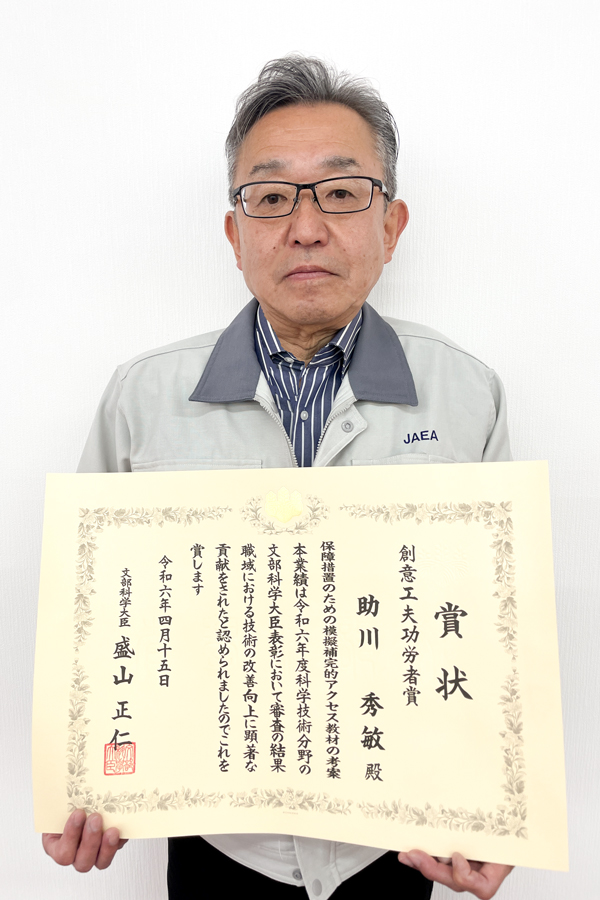 JAEA
賞状
創意工夫功労者賞
助川 秀敏 殿
保障措置のための模擬補完的アクセス教材の考案
本業績は令和六年度科学技術分野の
文部科学大臣表彰において審査の結果
職域における技術の改善向上に顕著な
貢献をされたと認められましたのでこれを
賞します
令和六年四月十五日
文部科学大臣 盛山正仁